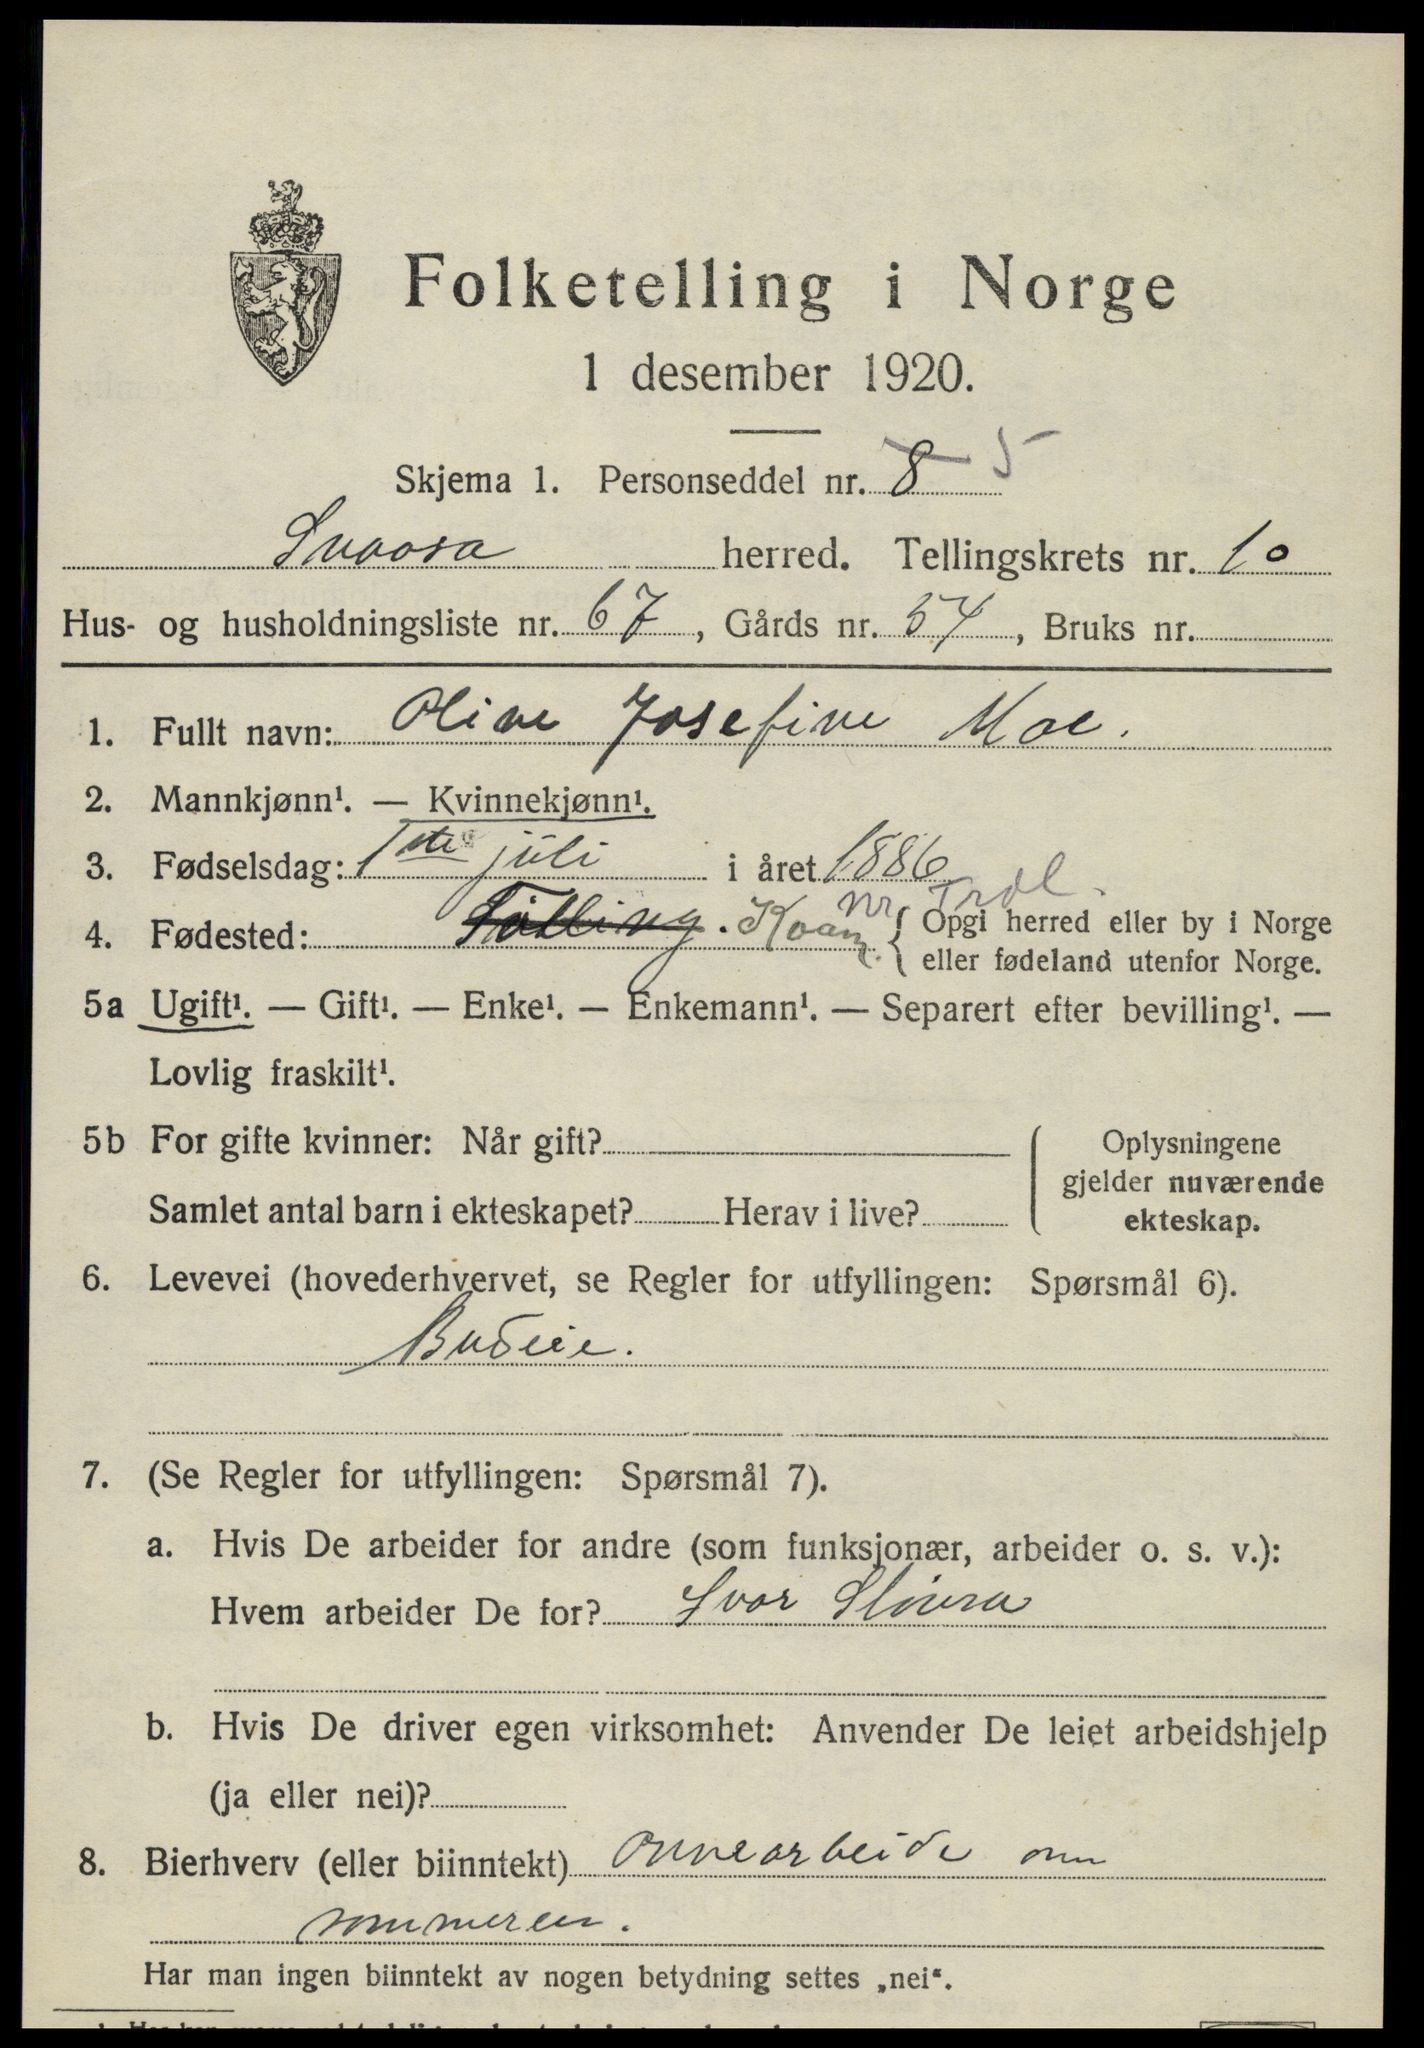 Folketelling i Norge
1 desember 1920.
Skjema 1. Personseddel nr. 8 5
Snaasa herred. Tellingskrets nr. 10
Hus- og husholdningsliste nr. 67, Gårds nr. 54, Bruks nr.
1. Fullt navn: Oline Josefine Moe.
2. Mannkjønn¹. — Kvinnekjønn¹.
3. Fødselsdag: 1ste juli i året 1886
Nr. Trdl.
4. Fødested: . Kvam. { Opgi herred eller by i Norge
eller fødeland utenfor Norge.
5a Ugift¹. — Gift¹. — Enke¹. — Enkemann¹. — Separert efter bevilling¹. —
Lovlig fraskilt¹.
5b For gifte kvinner: Når gift? { Oplysningene
gjelder nuværende
Samlet antal barn i ekteskapet? Herav i live? ekteskap.
6. Levevei (hovederhvervet, se Regler for utfyllingen: Spørsmål 6).
Budeie.
7. (Se Regler for utfyllingen: Spørsmål 7).
a. Hvis De arbeider for andre (som funksjonær, arbeider o. s. v.):
Hvem arbeider De for? Ivar
b. Hvis De driver egen virksomhet: Anvender De leiet arbeidshjelp
(ja eller nei)?
8. Bierhverv (eller biinntekt) Onnearbeide om
sommeren.
Har man ingen biinntekt av nogen betydning settes „nei“.